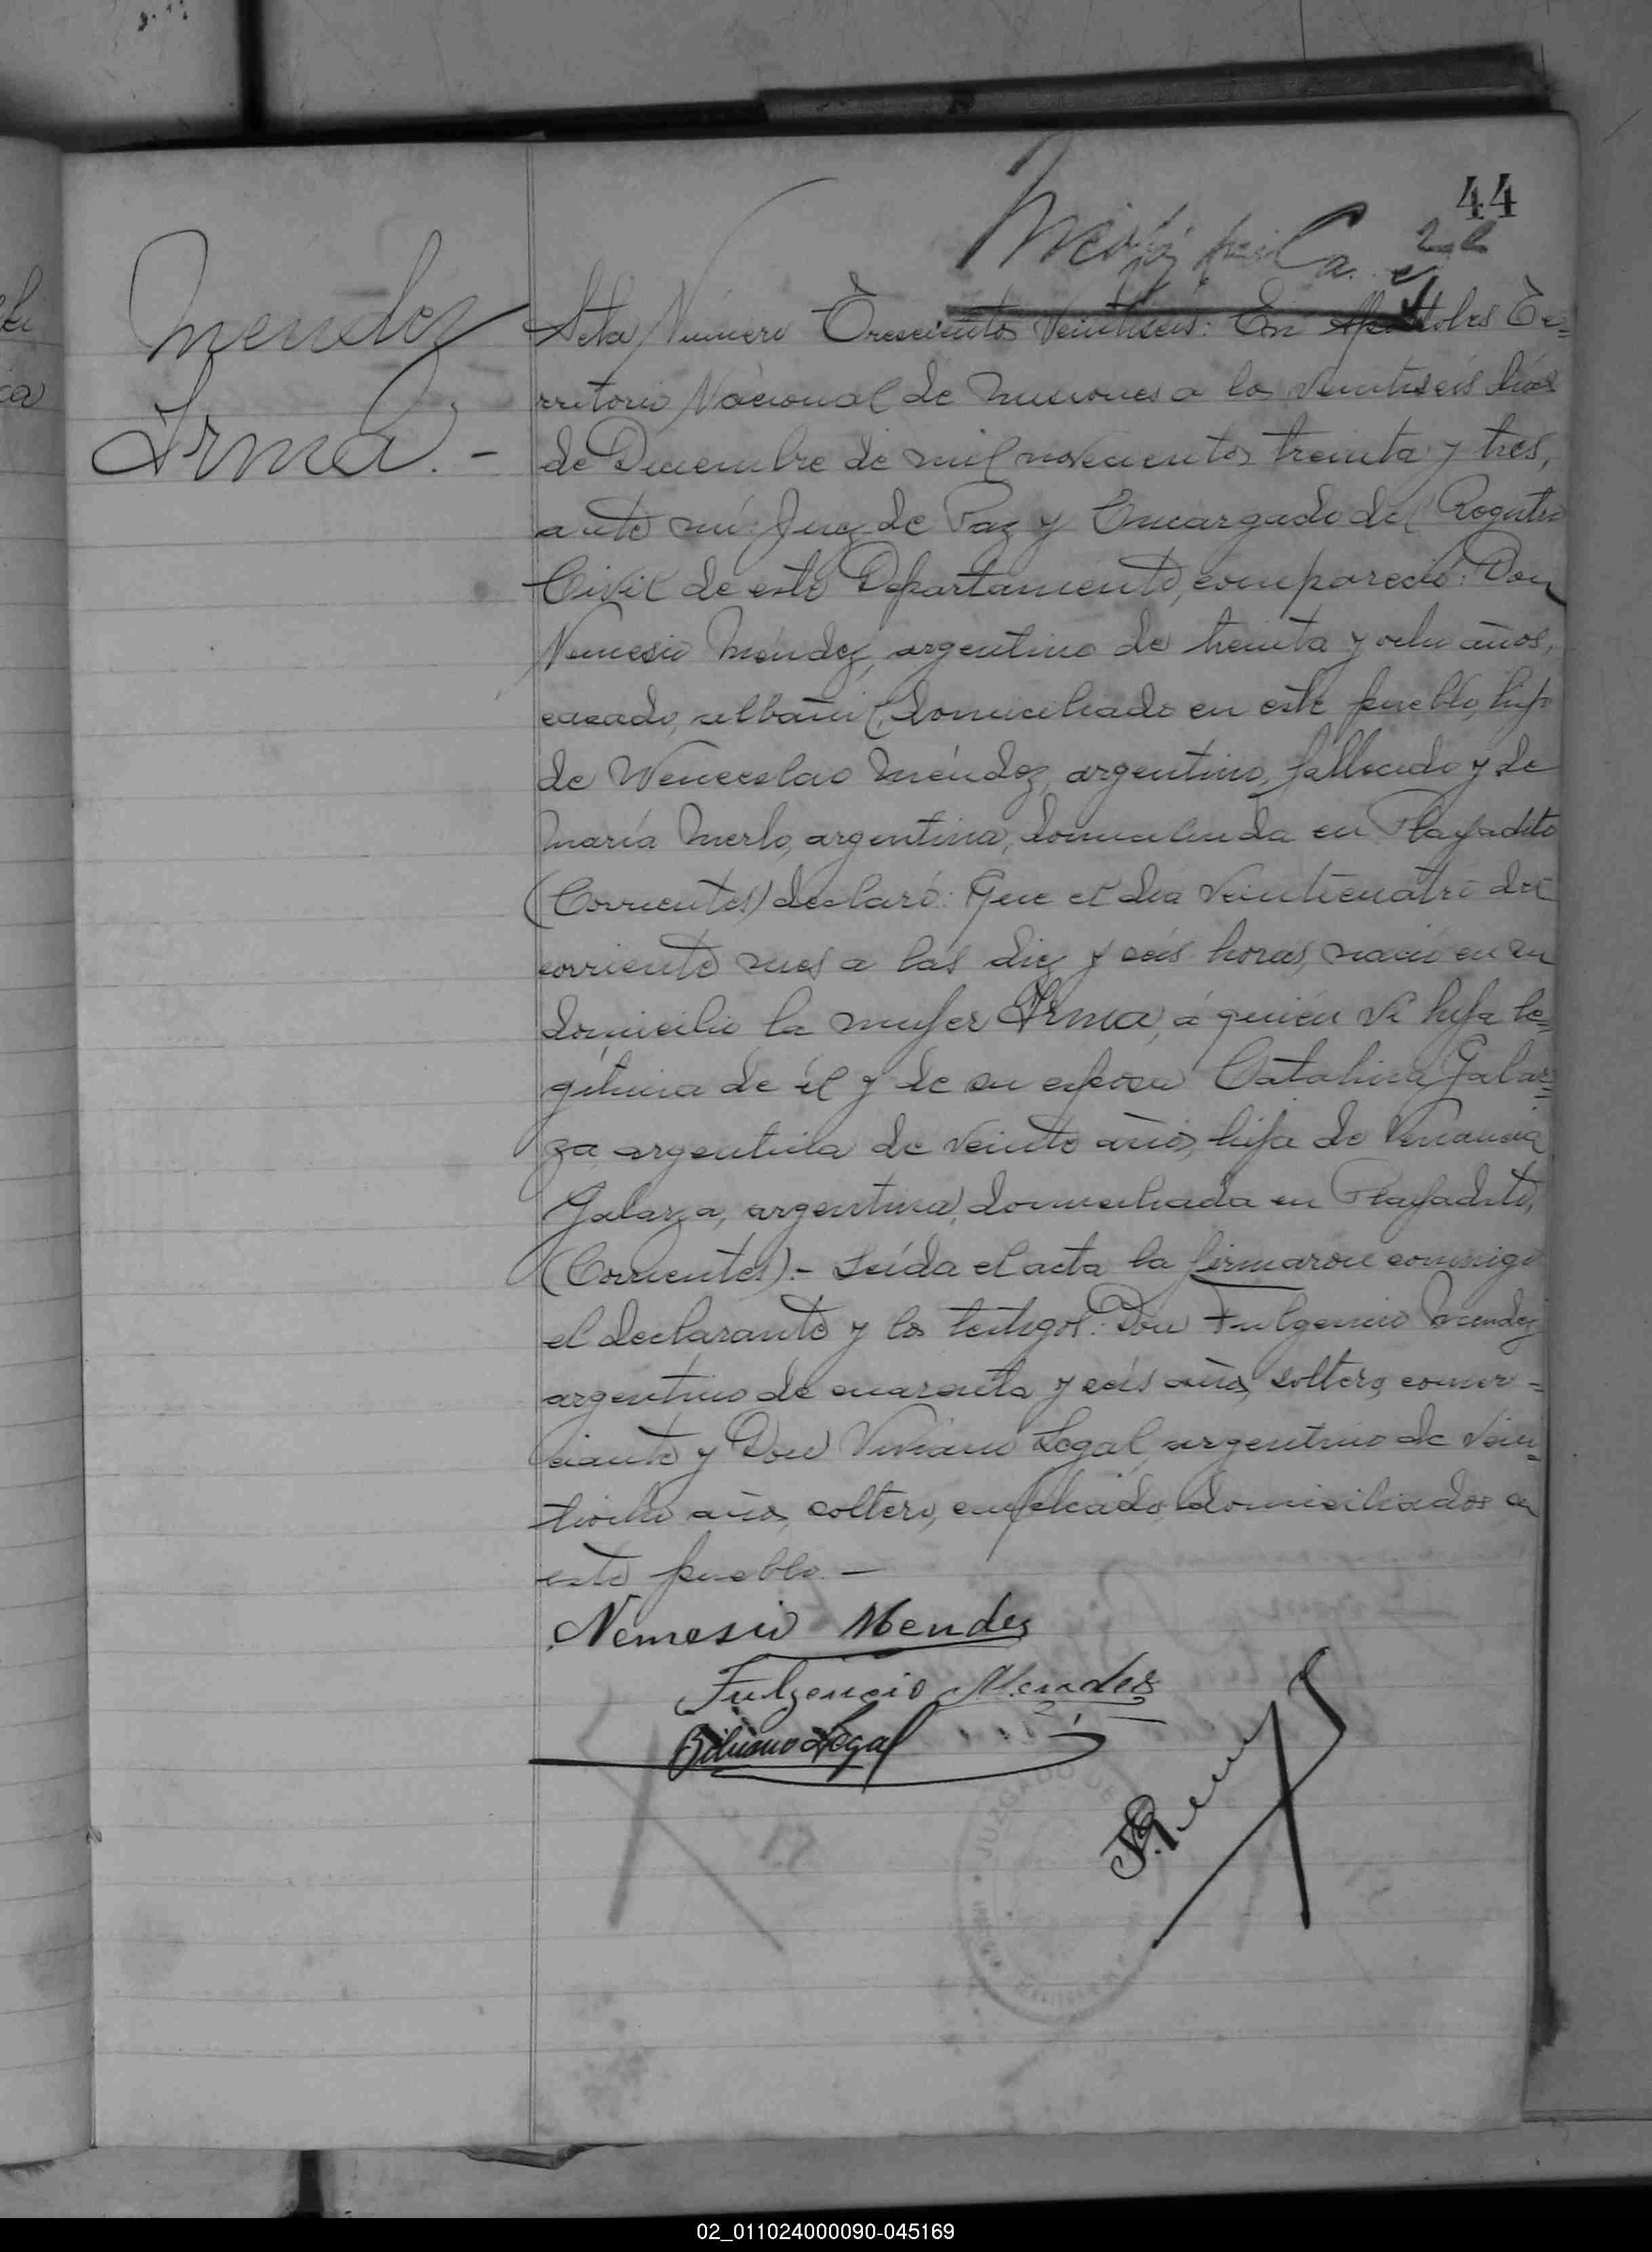 44
Mendez
Irma.-
Acta Número Trescientos Veintiseis: En Apóstoles Te=
rritorio Nacional de Misiones a los veintiseis días
de Diciembre de mil novecientos treinta y tres,
ante mí: Juez de Paz y Encargado del Registro
Civil de este Departamento, compareció: Don
Nemesio Méndez, argentino de treinta y ocho años,
casado, albañil, domiciliado en este pueblo, hijo
de Wenceslao Méndez, argentino, fallecido y de
María Merlo, argentina, domiciliada en Playadito
(Corrientes) declaró: Que el día veinticuatro del
corriente mes a las diez y seis horas, nació en su
domicilio la mujer Irma, á quién vi hija le=
gítima de él y de su esposa Catalina Galar=
za argentina de veinte años, hija de Venancia
Galarza, argentina, domiciliada en Playadito,
(Corrientes).- Leída el acta la firmaron conmigo
el declarante y los testigos: Don Fulgencio Mendez
argentino de cuarenta y seis años, soltero, comer-
ciante y Don Viviano Legal, argentino de vein=
tiocho años, soltero, empleado, domiciliados en
este pueblo.-
Nemesio Mendez
Fulgencio Mendez
Bibiano Legal
JUZGADO DE
02_011024000090-045169